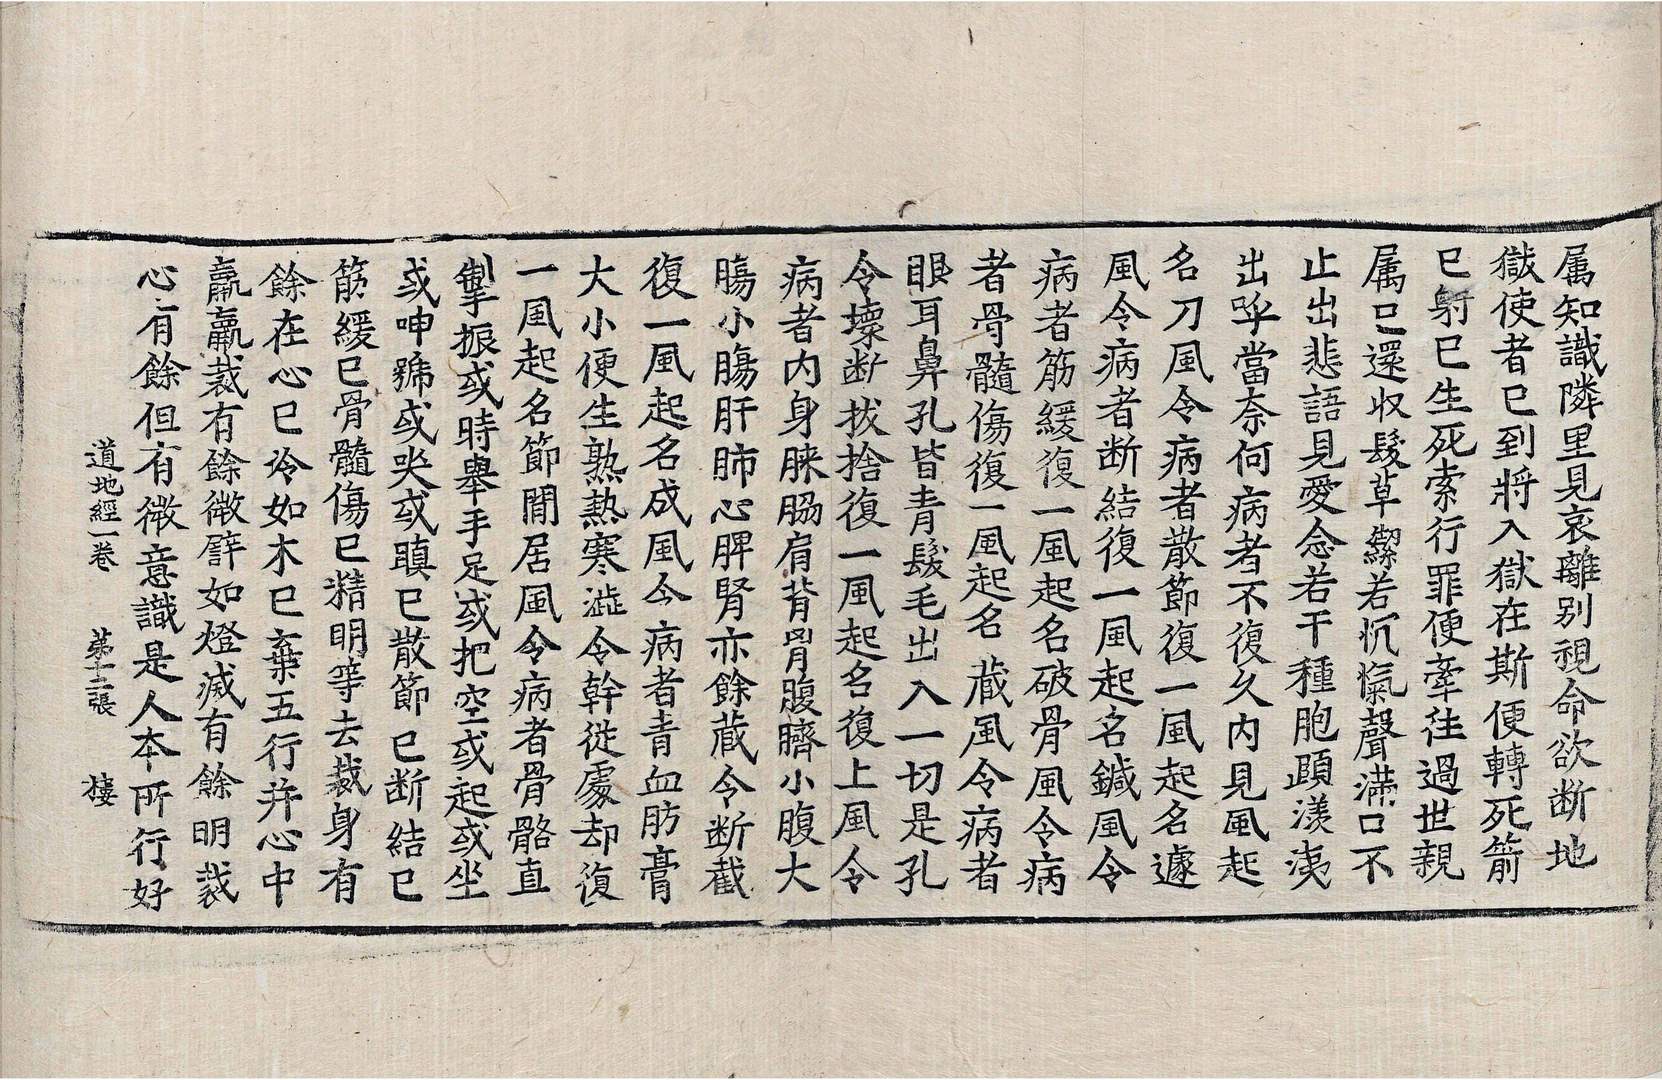 属知識隣里見哀離別視命欲断地
獄使者已到將入獄在斯便轉死箭
已射已生死索行罪便牽往過世親
属已還収髮草繫若沉愾聲滿口不
止出悲語見愛念若干種胞頤漾洟
出呼當奈何病者不復久内見風起
名刀風令病者散節復一風起名遽
風令病者断結復一風起名鍼風令
病者筋緩復一風起名破骨風令病
者骨髓傷復一風起名藏風令病者
眼耳鼻孔皆青髮毛出入一切是孔
令壞断拔捨復一風起名復上風令
病者内身膝脇肩背胷腹臍小腹大
腸小腸肝肺心脾腎亦餘藏令断截
復一風起名成風令病者青血肪膏
大小便生熟熱寒澁令幹從處却復
一風起名節間居風令病者骨骼直
掣振或時舉手足或把空或起或坐
或呻號或哭或瞋已散節已断結已
筋緩已骨髓傷已精明等去裁身有
餘在心已冷如木已棄五行并心中
羸羸裁有餘微譬如燈滅有餘明裁
心有餘但有微意識是人本所行好
道地經一卷　第十二張　樓